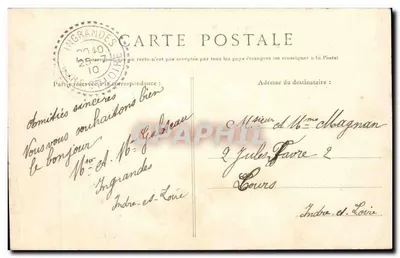 CARTE POSTALE
La Correspondance au recto n'est pas acceptée par tous les pays étrangers (se renseigner à la Poste)
Partie réservée à la correspondance:
Adresse du destinataire:
INGRANDES
INDRE-ET-LOIRE
10
Amitiés sincères
Vous vous souhaitons bien
le bonjour
Mr et Me
Ingrandes
Indre-et-Loire
Msieur et Mme Magnan
2 Jules Favre 2
Tours
Indre-et-Loire
CPAPHIL